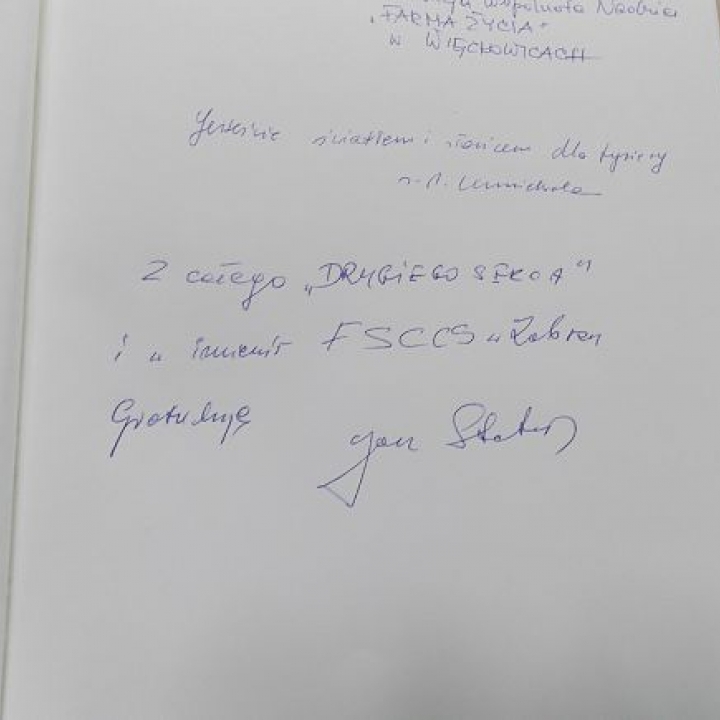 Wspólnota Nadzieja
„FARMA ŻYCIA"
w WIĘCKOWICACH
Jesteście światłem i słońcem dla tysięcy
Z całego „DRUGIEGO SERCA"
i w imieniu FSCCS w Zabrzu
Gratuluję
Jan